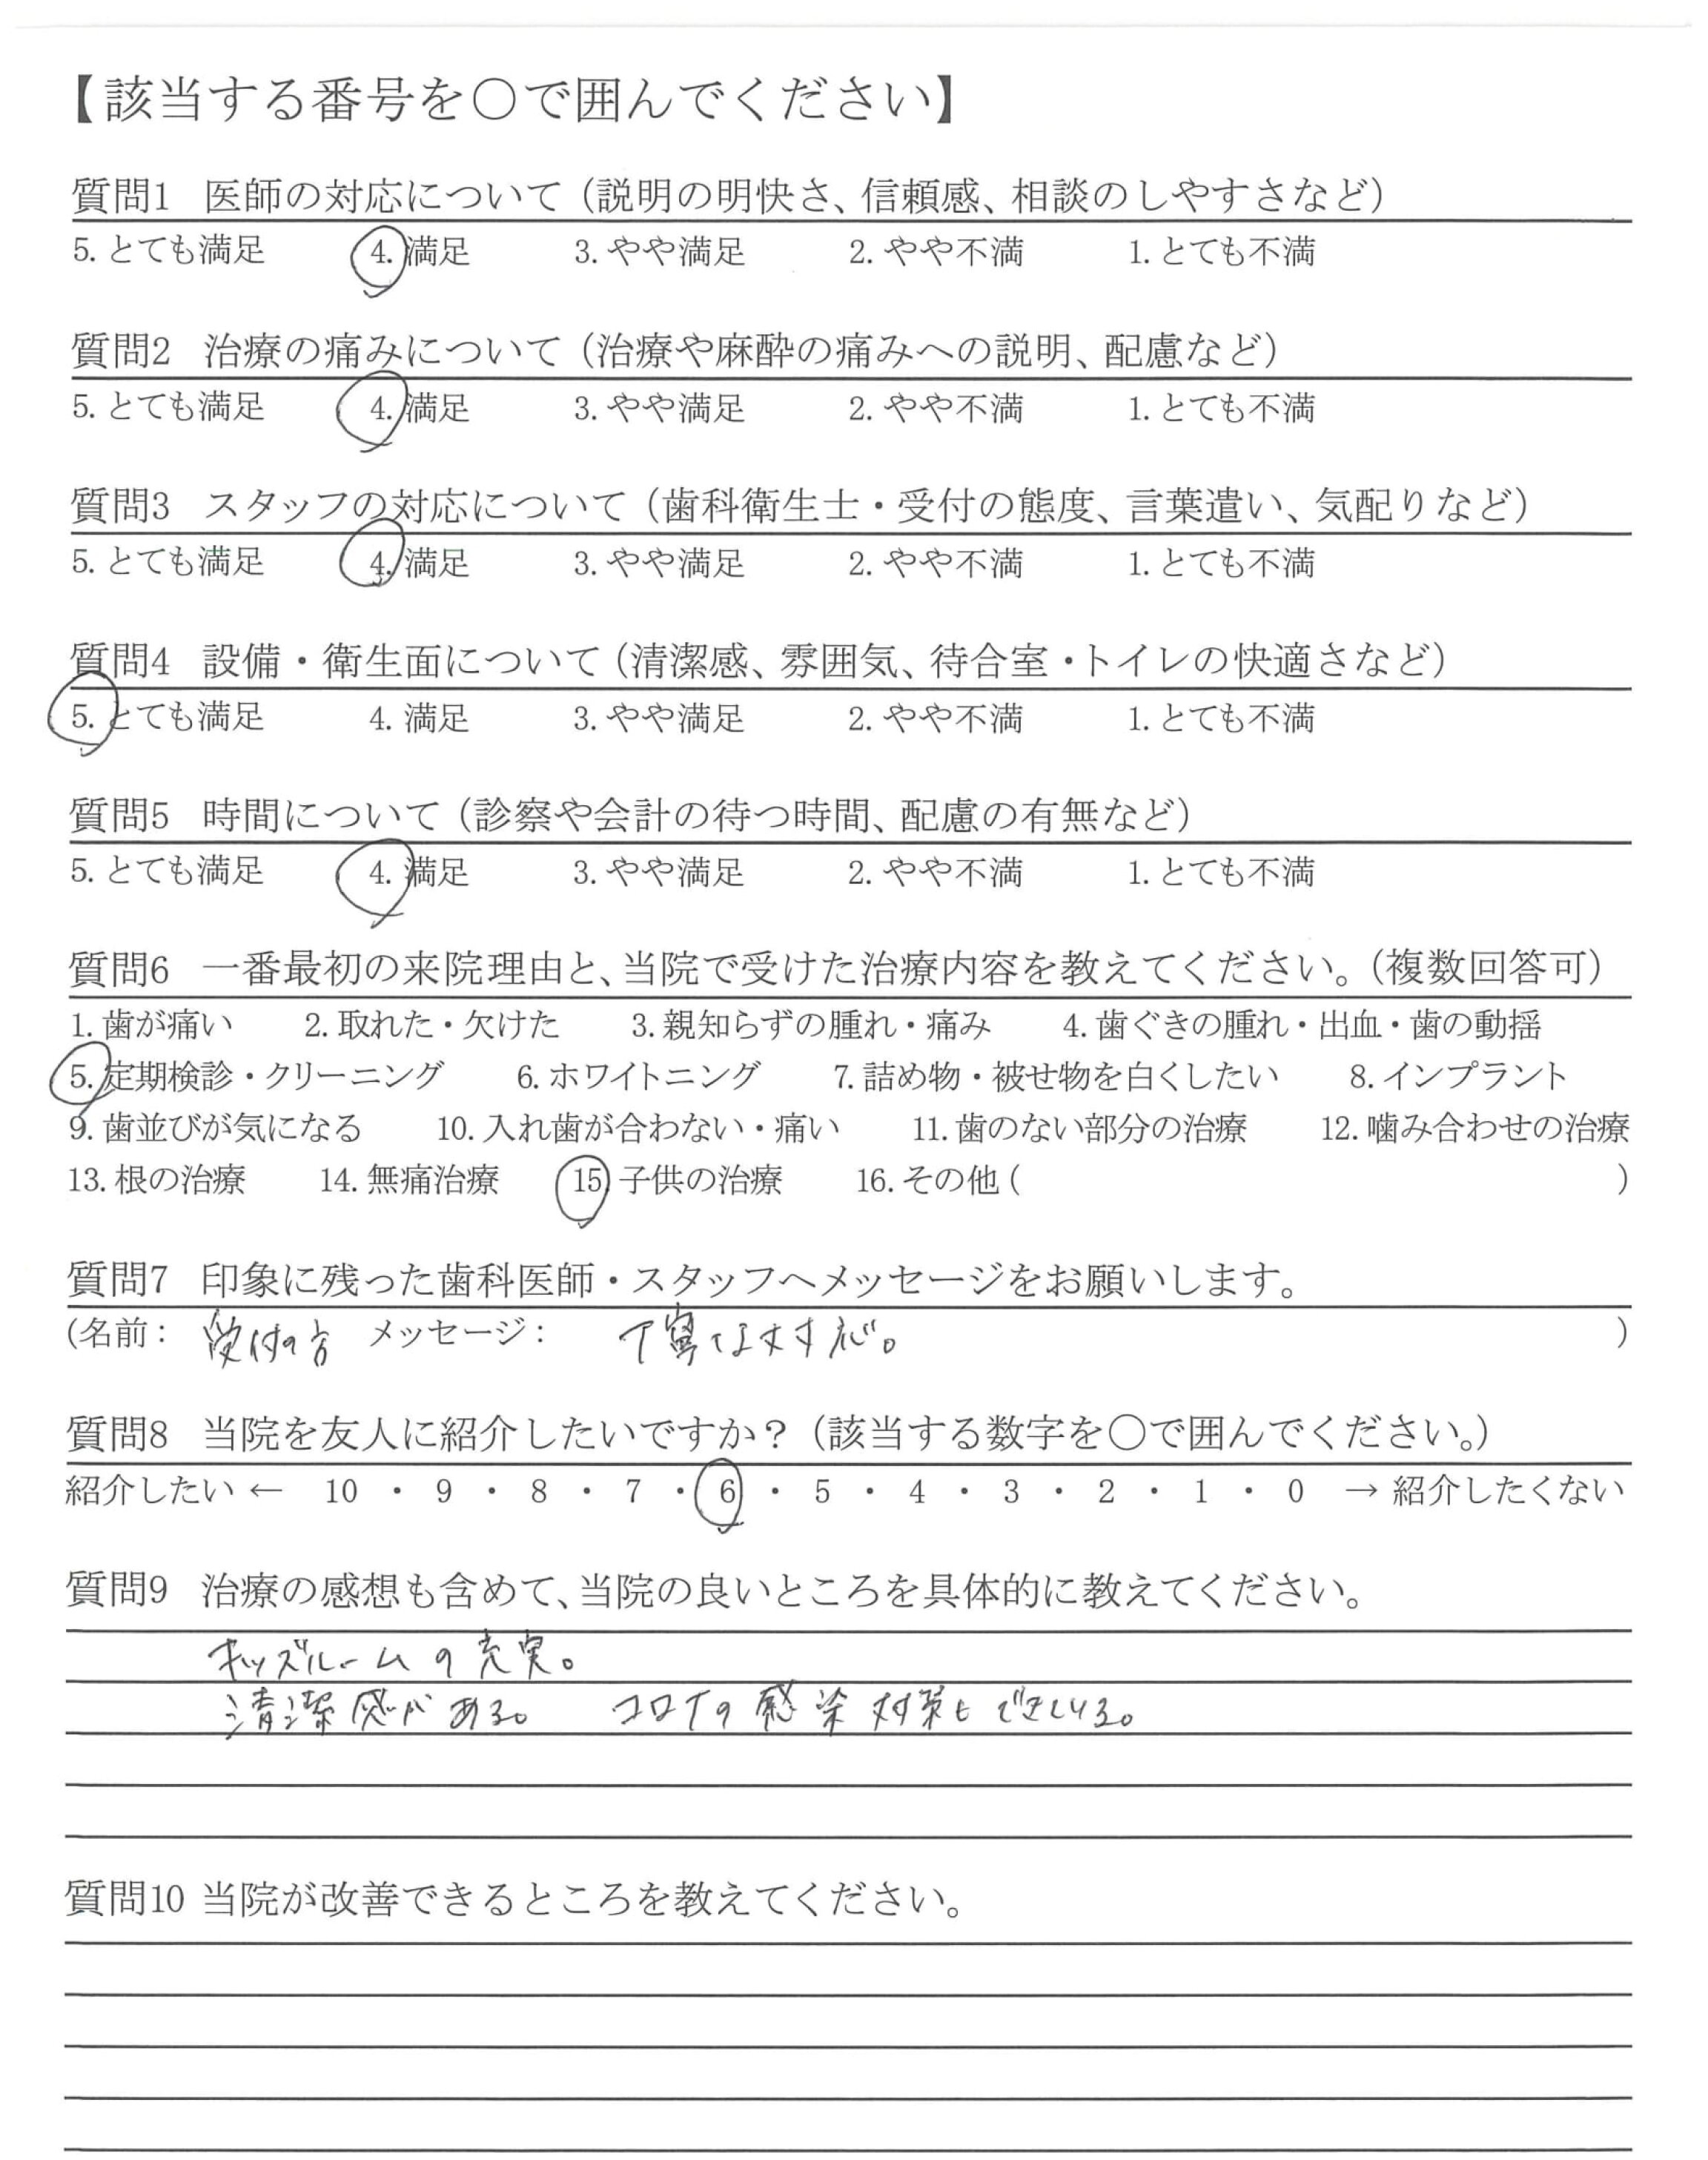 【該当する番号を〇で囲んでください】
質問1 医師の対応について（説明の明快さ、信頼感、相談のしやすさなど）
5. とても満足 4. 満足 3. やや満足 2. やや不満 1. とても不満
質問2 治療の痛みについて（治療や麻酔の痛みへの説明、配慮など）
5. とても満足 4. 満足 3. やや満足 2. やや不満 1. とても不満
質問3 スタッフの対応について（歯科衛生士・受付の態度、言葉遣い、気配りなど）
5. とても満足 4. 満足 3. やや満足 2. やや不満 1. とても不満
質問4 設備・衛生面について（清潔感、雰囲気、待合室・トイレの快適さなど）
5. とても満足 4. 満足 3. やや満足 2. やや不満 1. とても不満
質問5 時間について（診察や会計の待つ時間、配慮の有無など）
5. とても満足 4. 満足 3. やや満足 2. やや不満 1. とても不満
質問6 一番最初の来院理由と、当院で受けた治療内容を教えてください。（複数回答可）
1. 歯が痛い 2. 取れた・欠けた 3. 親知らずの腫れ・痛み 4. 歯ぐきの腫れ・出血・歯の動揺
5. 定期検診・クリーニング 6. ホワイトニング 7. 詰め物・被せ物を白くしたい 8. インプラント
9. 歯並びが気になる 10. 入れ歯が合わない・痛い 11. 歯のない部分の治療 12. 噛み合わせの治療
13. 根の治療 14. 無痛治療 15. 子供の治療 16. その他 ( )
質問7 印象に残った歯科医師・スタッフへメッセージをお願いします。
（名前： 受付の方 メッセージ： 丁寧 ）
質問8 当院を友人に紹介したいですか？（該当する数字を〇で囲んでください。）
紹介したい ← 10 ・ 9 ・ 8 ・ 7 ・ 6 ・ 5 ・ 4 ・ 3 ・ 2 ・ 1 ・ 0 → 紹介したくない
質問9 治療の感想も含めて、当院の良いところを具体的に教えてください。
キッズルームの充実。
清潔感がある。 コロナの感染対策もできている。
質問10 当院が改善できるところを教えてください。